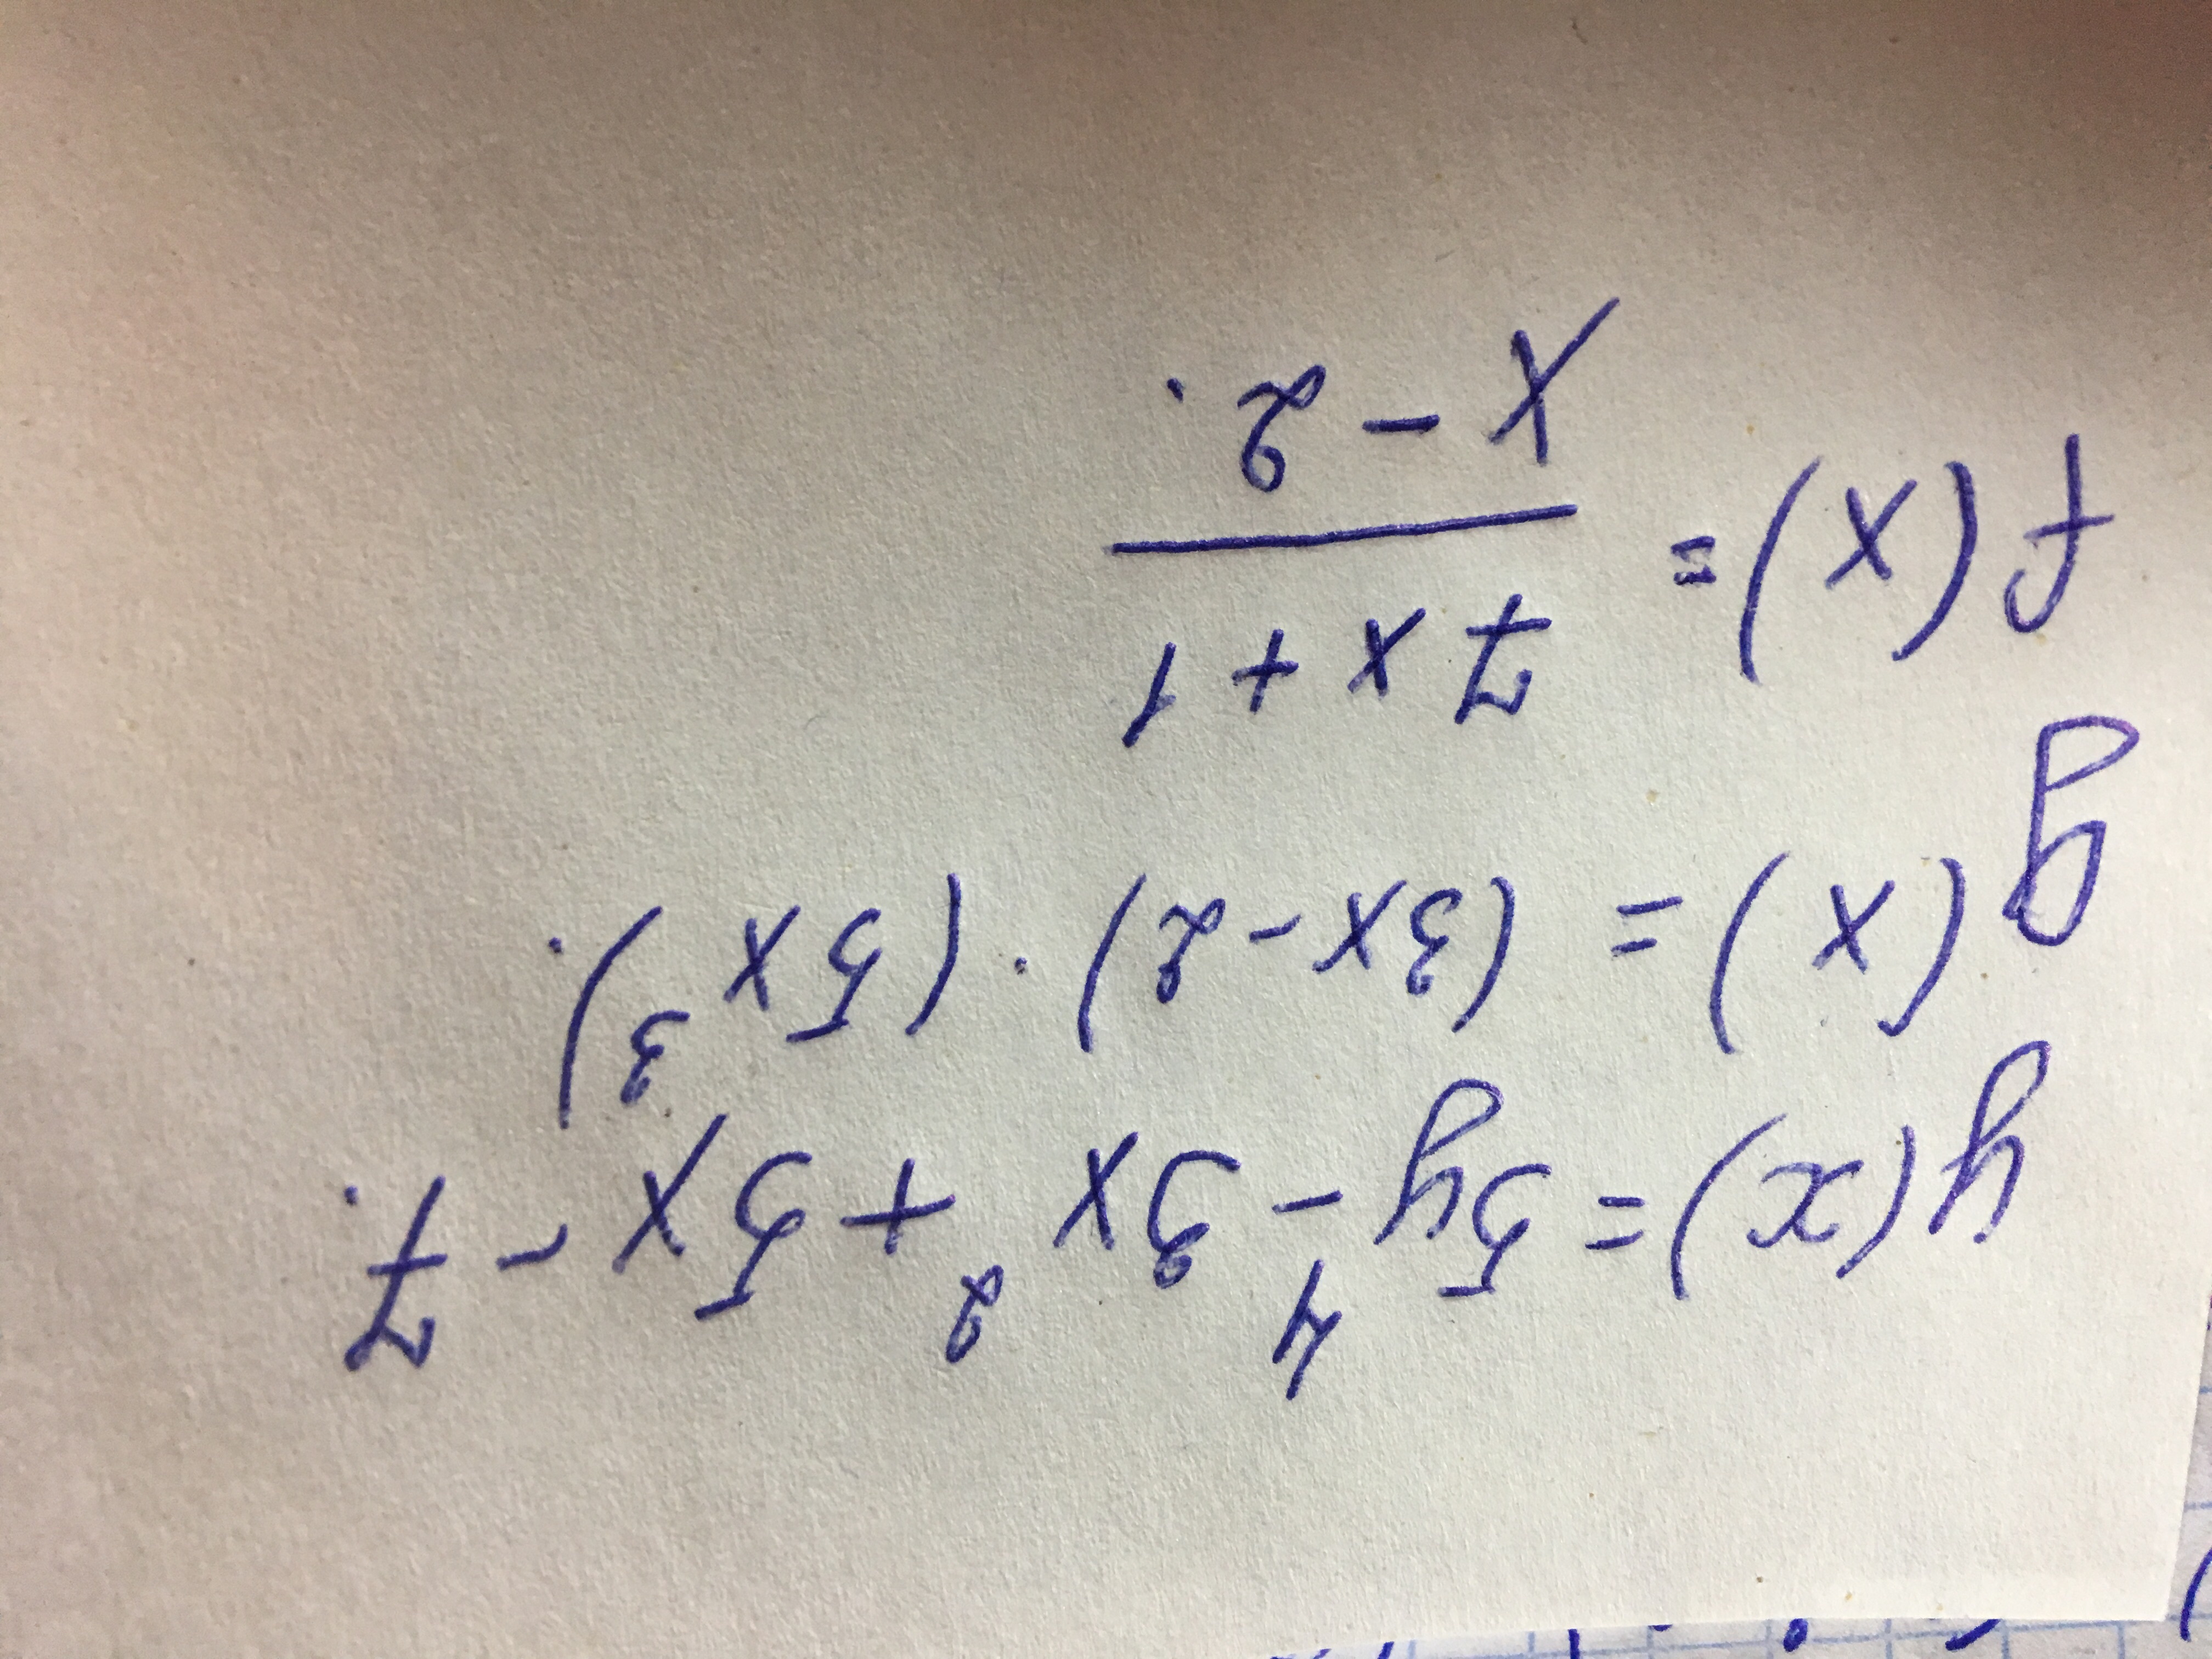 y(x) = 5y⁴ - 3x² + 5x - 7.
g(x) = (3x - 2) · (5x³).
f(x) = (7x + 1) / (x - 2).